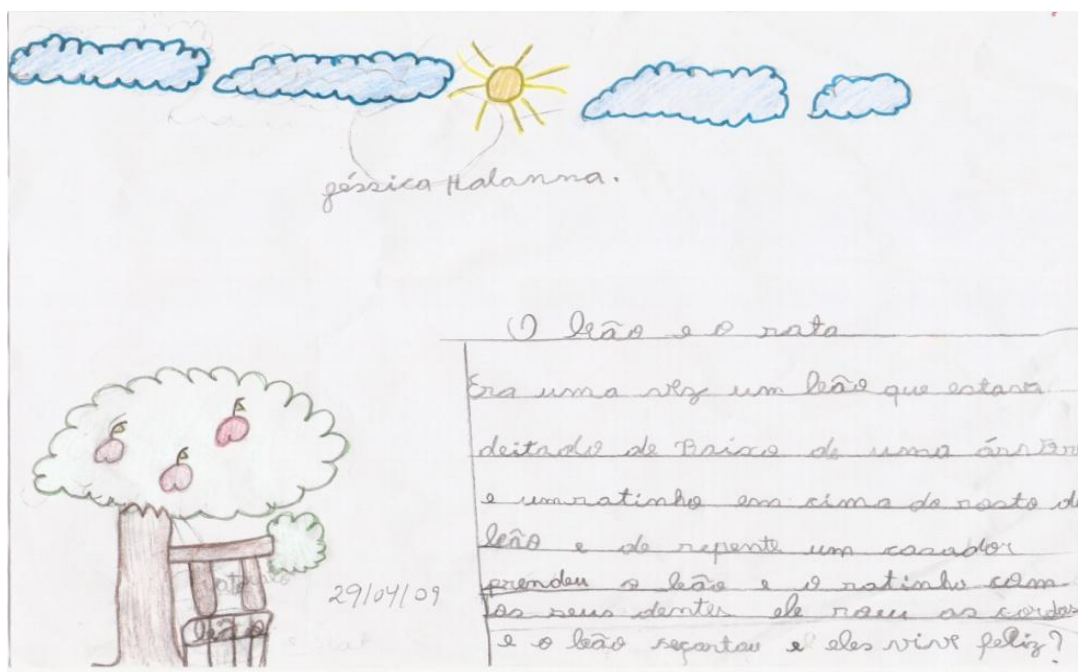 Jéssica Halanna.
O leão e o rato
Era uma vez um leão que estava
deitado de Baixo de uma árvBr
e um ratinho em cima do rosto do
leão e de repente um casador
prendeu o leão e o ratinho com
os seus dentes ele roeu as cordas
e o leão seçartou e eles vive feliz?
29/04/09
leão